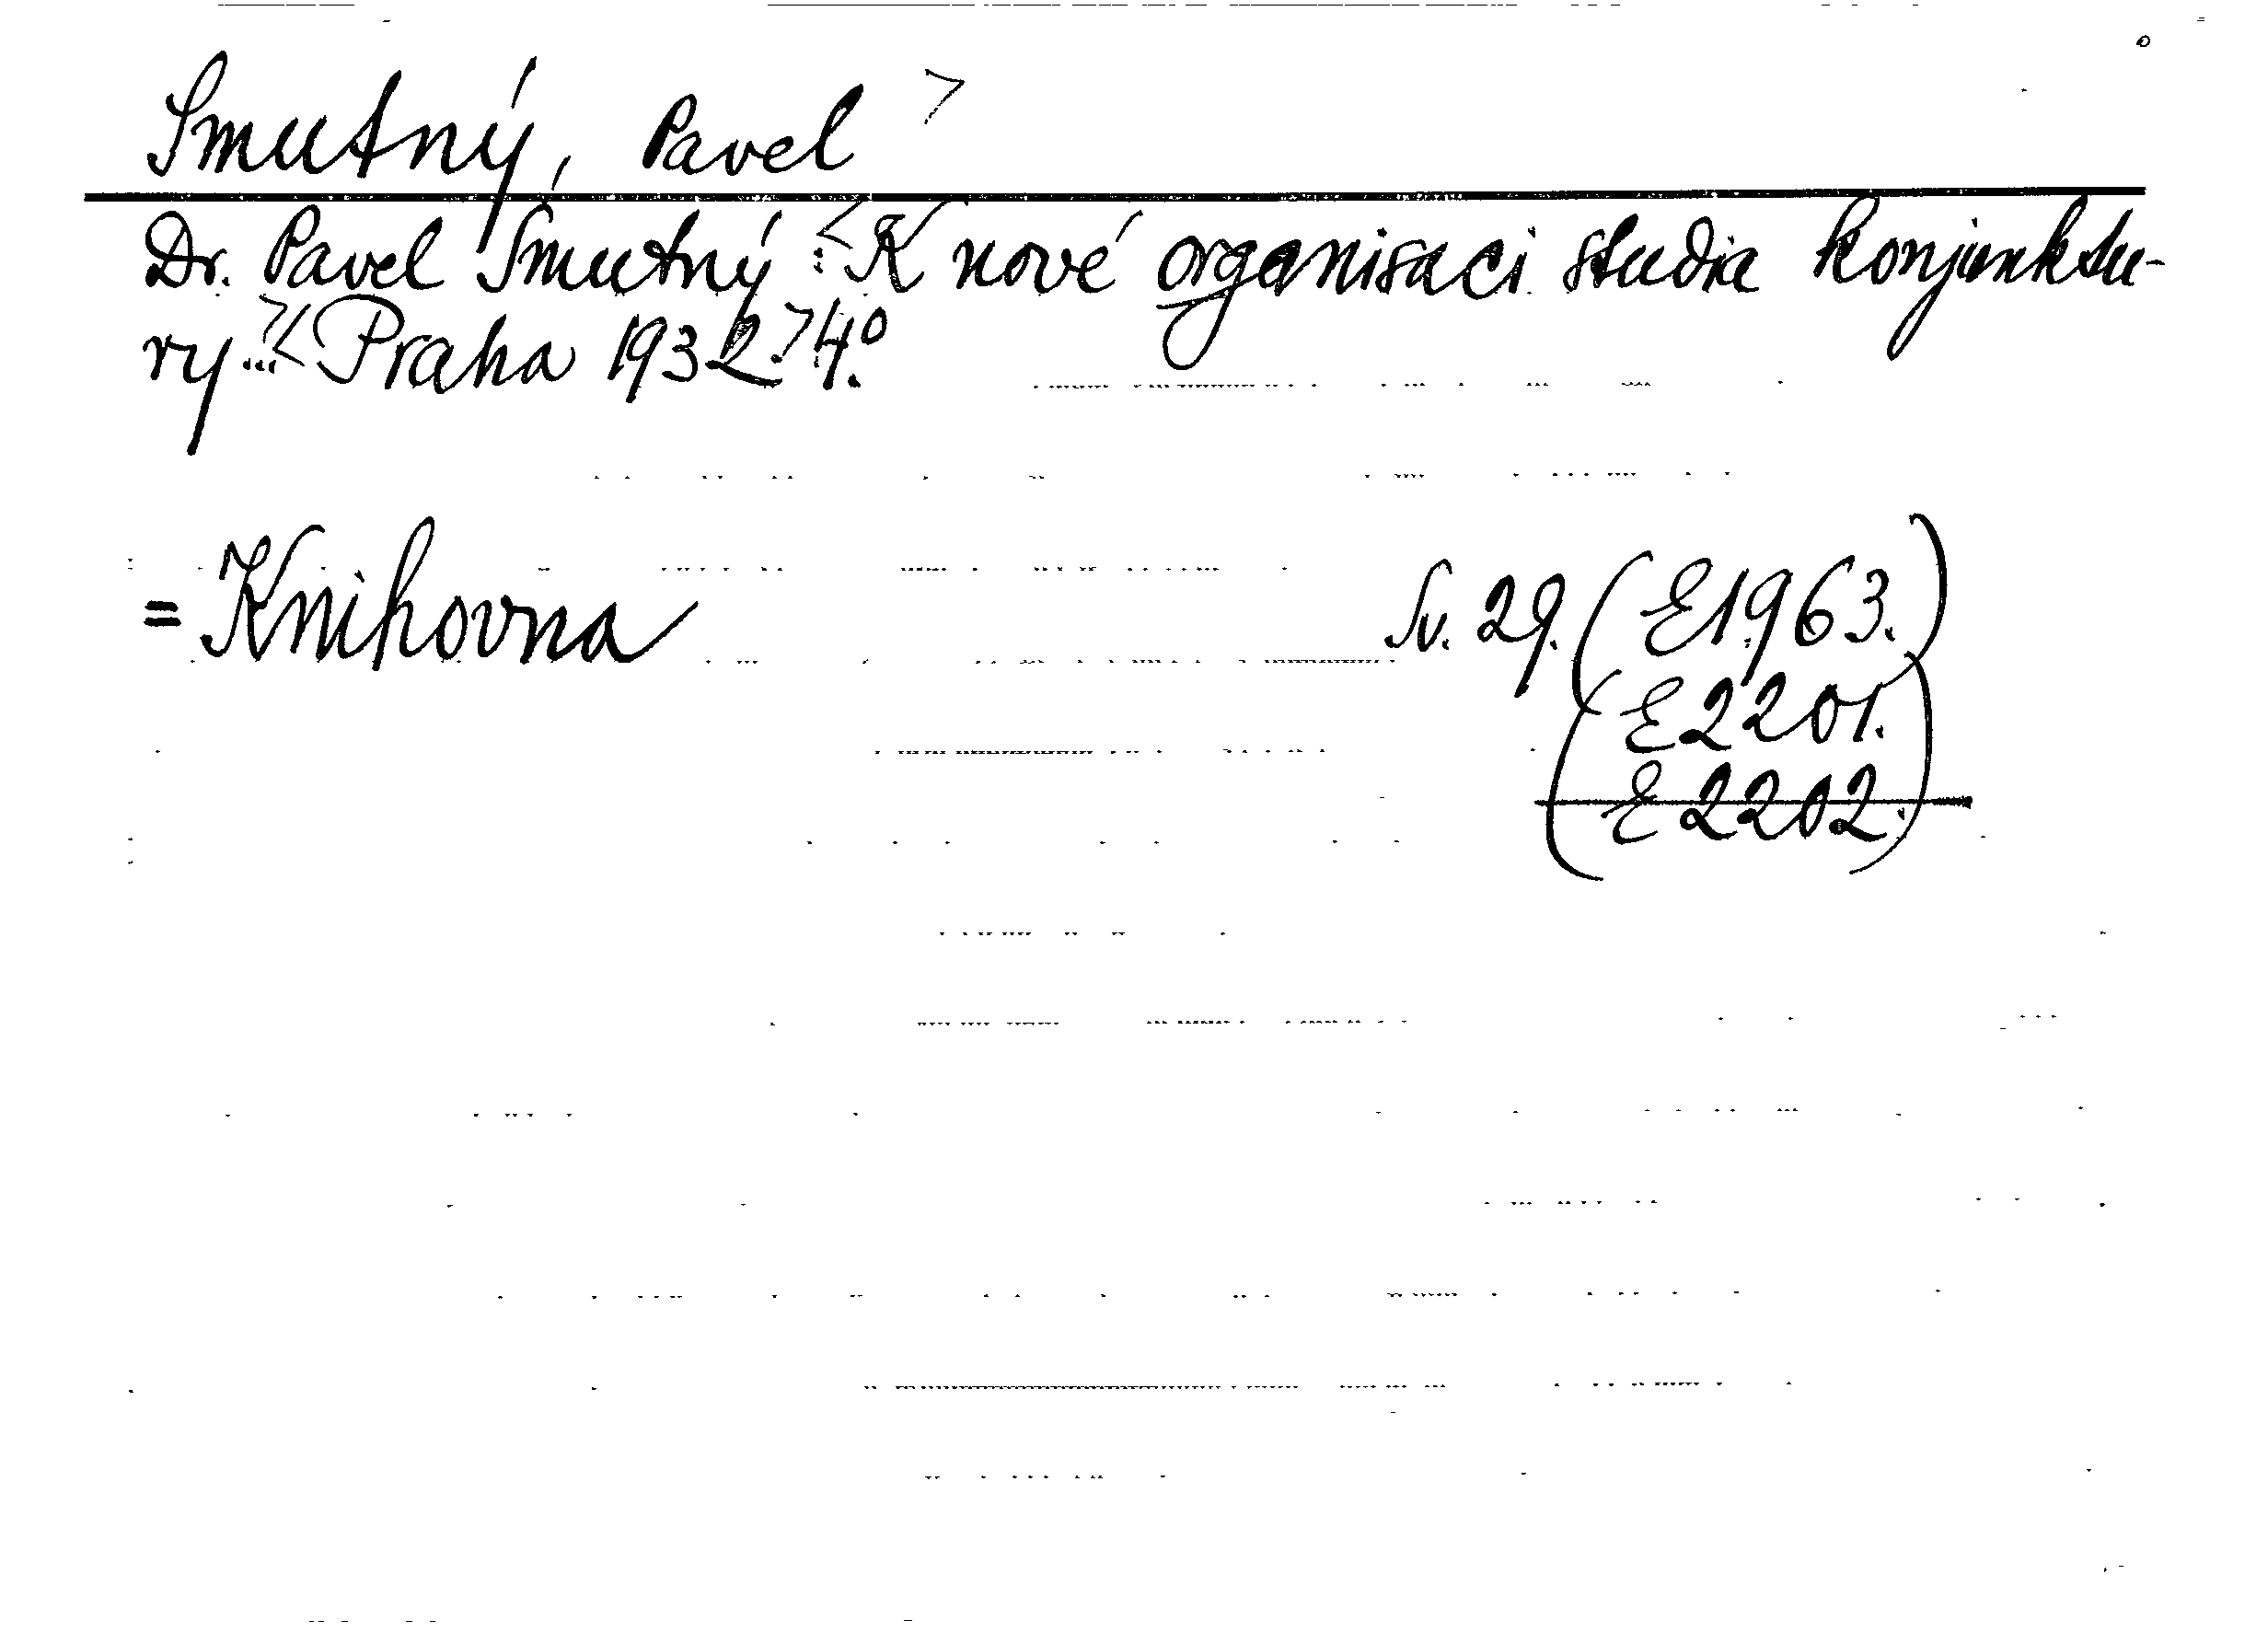 Smutný, Pavel >
Dr. Pavel Smutný : <K nové organisaci studia konjunktu-
ry...> <Praha 1932.> 4.°
= Knihovna Sv. 29. (E1963.)
(E2201.
E2202.)